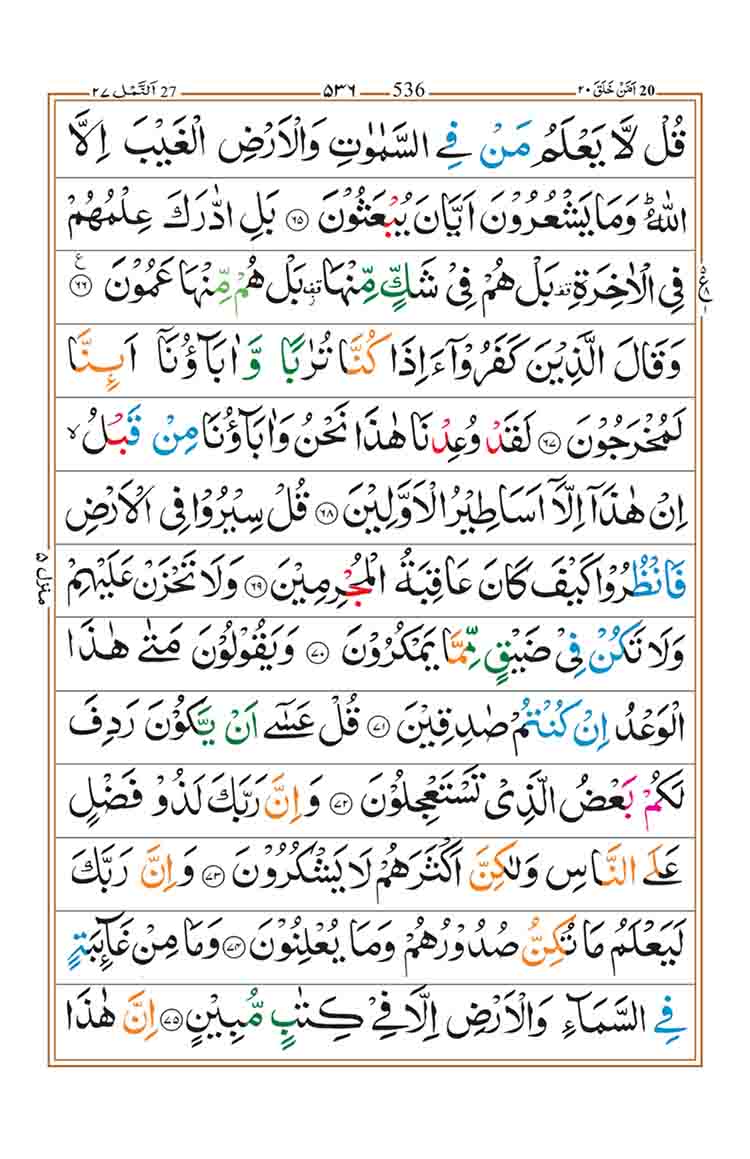 ٢٧ اَلنَّمْل 27 ٥٣٦ 536 اَمَّنْ خَلَقَ ٢٠ 20
قُلْ لَّا يَعْلَمُ مَنْ فِي السَّمٰوٰتِ وَالْاَرْضِ الْغَيْبَ اِلَّا
اللّٰهُ ؕ وَمَا يَشْعُرُوْنَ اَيَّانَ يُبْعَثُوْنَ ﴿٦٥﴾ بَلِ ادّٰرَكَ عِلْمُهُمْ
فِي الْاٰخِرَةِ ۫ بَلْ هُمْ فِيْ شَكٍّ مِّنْهَا ۫ بَلْ هُمْ مِّنْهَا عَمُوْنَ ﴿٦٦﴾ ع
وَقَالَ الَّذِيْنَ كَفَرُوْٓا ءَاِذَا كُنَّا تُرٰبًا وَّاٰبَآؤُنَآ اَىِٕنَّا
لَمُخْرَجُوْنَ ﴿٦٧﴾ لَقَدْ وُعِدْنَا هٰذَا نَحْنُ وَاٰبَآؤُنَا مِنْ قَبْلُ ۙ
اِنْ هٰذَآ اِلَّآ اَسَاطِيْرُ الْاَوَّلِيْنَ ﴿٦٨﴾ قُلْ سِيْرُوْا فِي الْاَرْضِ
فَانْظُرُوْا كَيْفَ كَانَ عَاقِبَةُ الْمُجْرِمِيْنَ ﴿٦٩﴾ وَلَا تَحْزَنْ عَلَيْهِمْ
وَلَا تَكُنْ فِيْ ضَيْقٍ مِّمَّا يَمْكُرُوْنَ ﴿٧٠﴾ وَيَقُوْلُوْنَ مَتٰى هٰذَا
الْوَعْدُ اِنْ كُنْتُمْ صٰدِقِيْنَ ﴿٧١﴾ قُلْ عَسٰٓى اَنْ يَّكُوْنَ رَدِفَ
لَكُمْ بَعْضُ الَّذِيْ تَسْتَعْجِلُوْنَ ﴿٧٢﴾ وَاِنَّ رَبَّكَ لَذُوْ فَضْلٍ
عَلَى النَّاسِ وَلٰكِنَّ اَكْثَرَهُمْ لَا يَشْكُرُوْنَ ﴿٧٣﴾ وَاِنَّ رَبَّكَ
لَيَعْلَمُ مَا تُكِنُّ صُدُوْرُهُمْ وَمَا يُعْلِنُوْنَ ﴿٧٤﴾ وَمَا مِنْ غَآىِٕبَةٍ
فِي السَّمَآءِ وَالْاَرْضِ اِلَّا فِيْ كِتٰبٍ مُّبِيْنٍ ﴿٧٥﴾ اِنَّ هٰذَا
منزل ٥